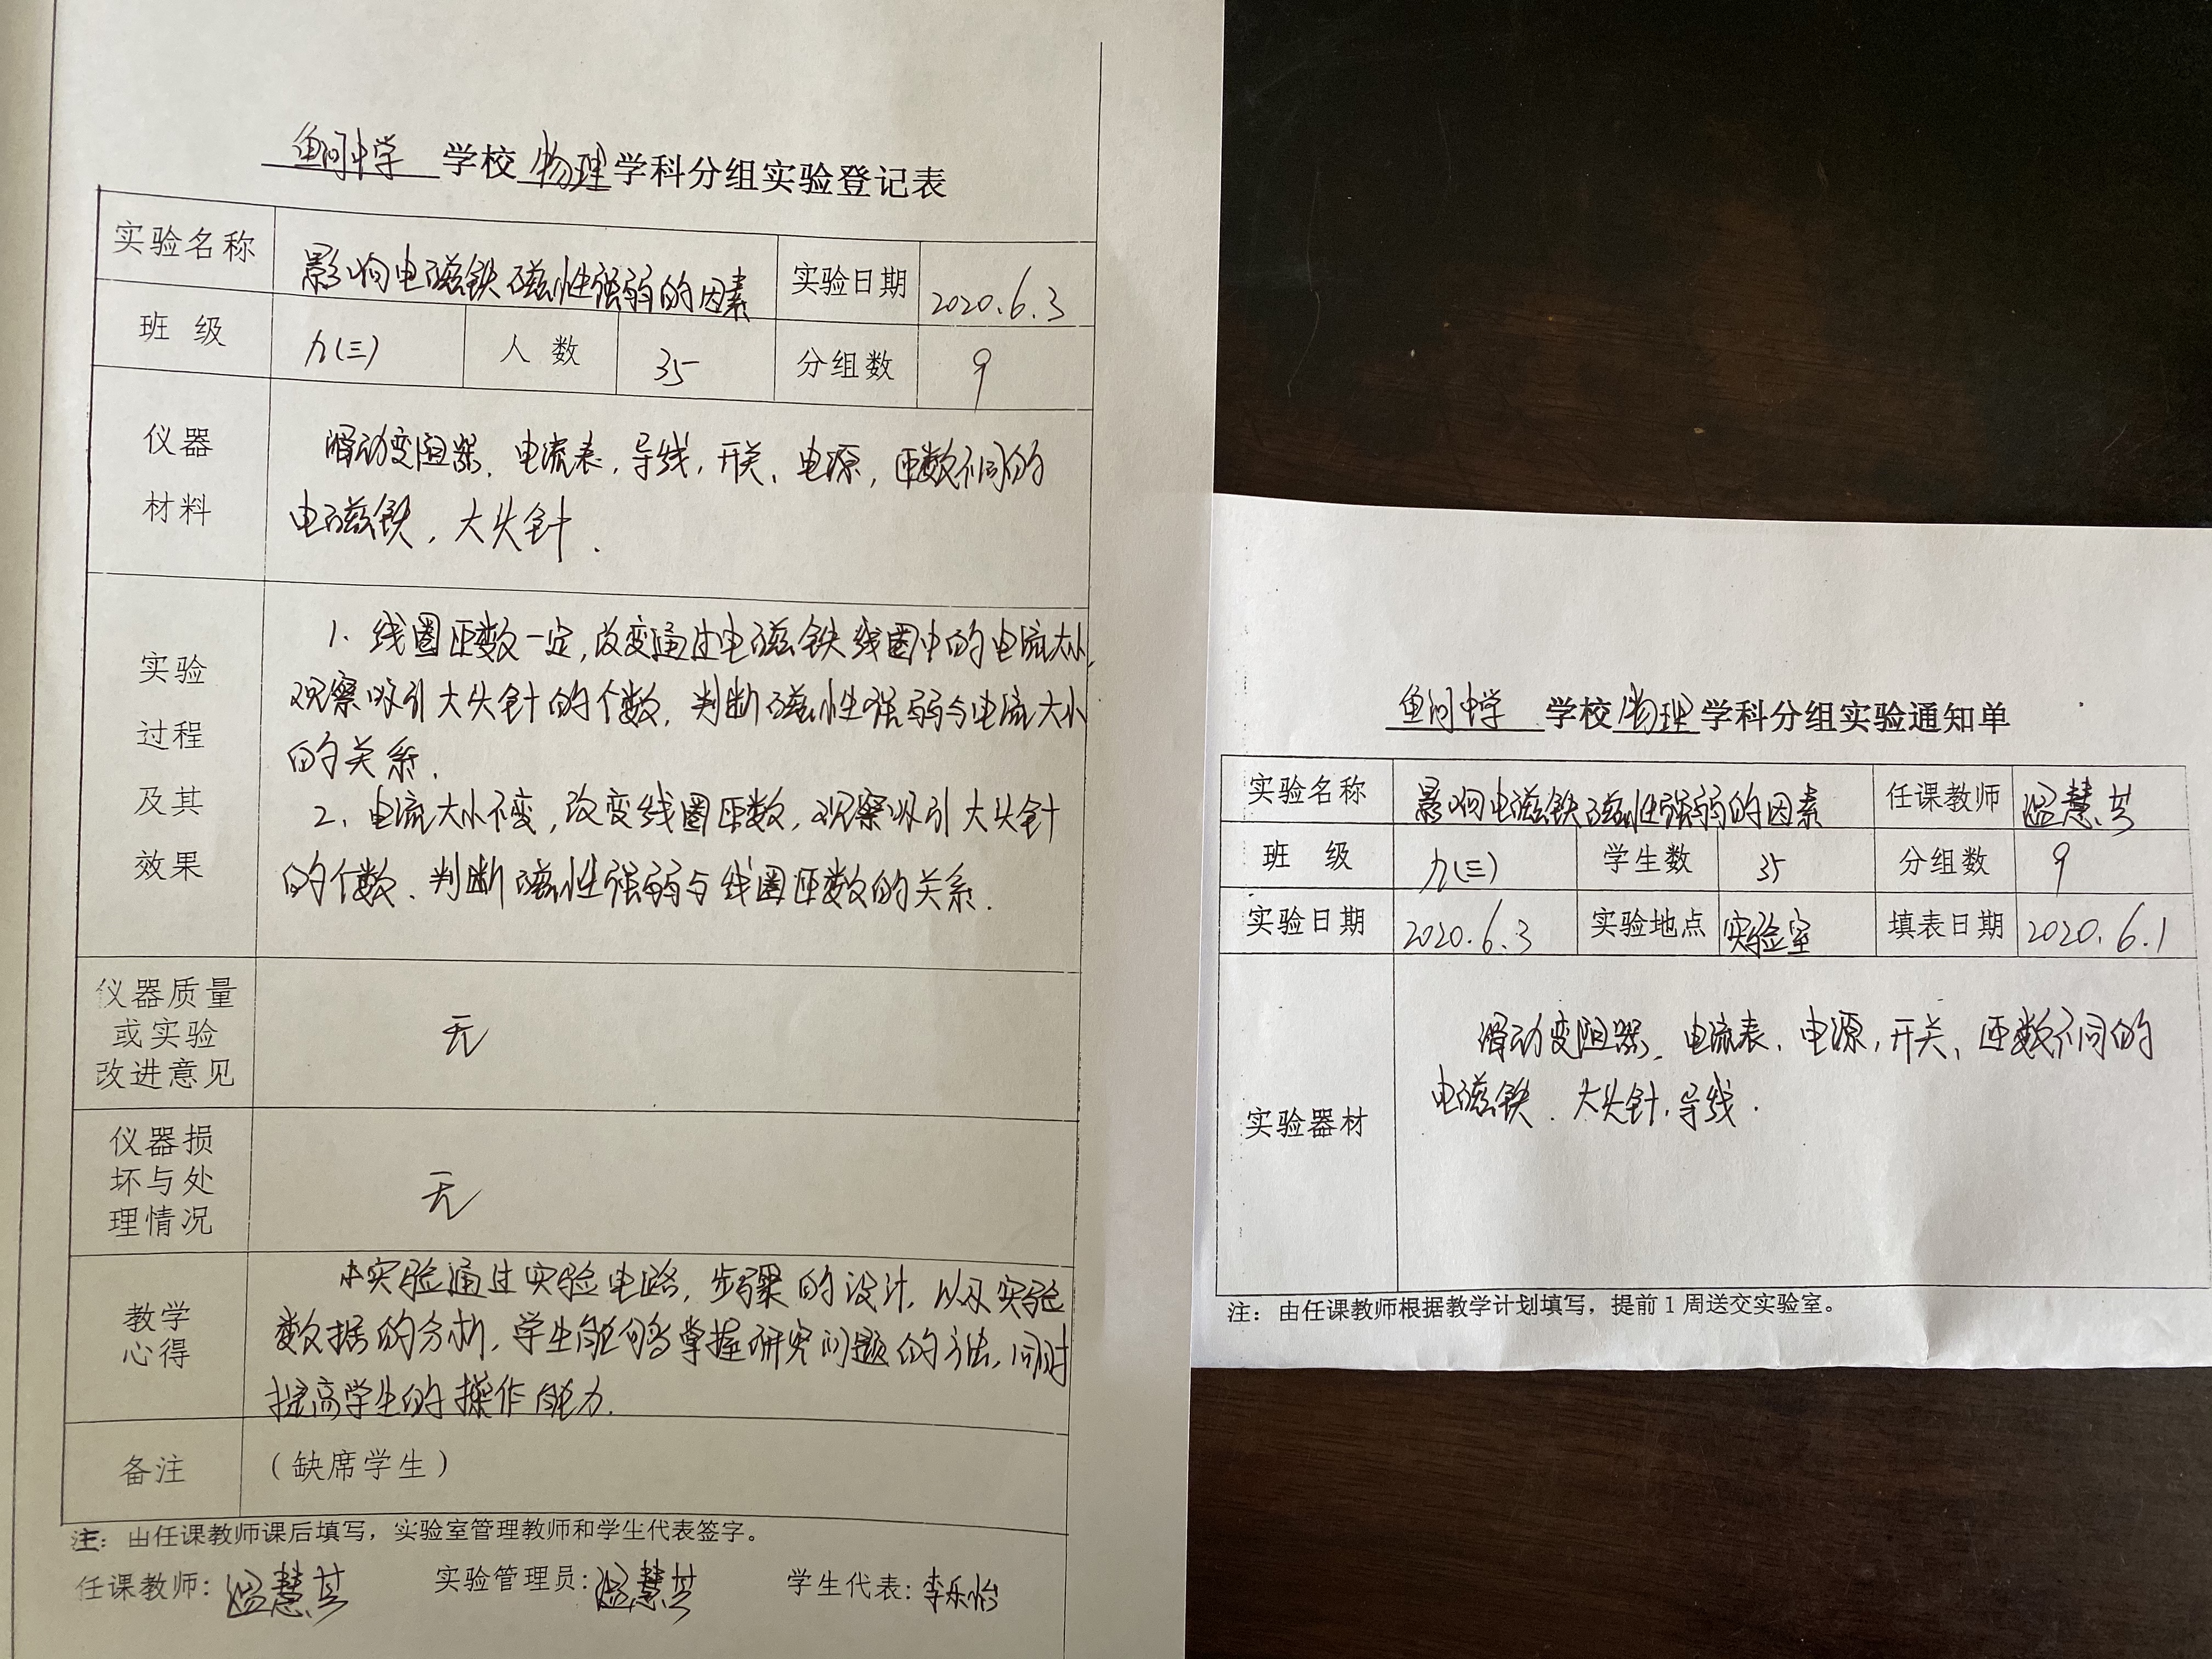 鱼河中学 学校 物理 学科分组实验登记表
实验名称 影响电磁铁磁性强弱的因素 实验日期 2020.6.3
班 级 九(三) 人 数 35 分组数 9
仪器
材料
滑动变阻器、电流表,导线,开关、电源,匝数不同的
电磁铁,大头针.
实验
过程
及其
效果
1、线圈匝数一定,改变通过电磁铁线圈中的电流大小,
观察吸引大头针的个数,判断磁性强弱与电流大小
的关系.
2、电流大小不变,改变线圈匝数,观察吸引大头针
的个数、判断磁性强弱与线圈匝数的关系.
仪器质量
或实验
改进意见
无
仪器损
坏与处
理情况
无
教学
心得
本实验通过实验电路,步骤的设计,以及实验
数据的分析,学生能够掌握研究问题的方法,同时
提高学生的操作能力.
备注 (缺席学生)
注:由任课教师课后填写,实验室管理教师和学生代表签字。
任课教师: 温慧芸 实验管理员: 温慧芸 学生代表: 李乐怡
鱼河中学 学校 物理 学科分组实验通知单
实验名称 影响电磁铁磁性强弱的因素 任课教师 温慧芸
班 级 九(三) 学生数 35 分组数 9
实验日期 2020.6.3 实验地点 实验室 填表日期 2020.6.1
实验器材
滑动变阻器、电流表、电源,开关、匝数不同的
电磁铁、大头针,导线.
注:由任课教师根据教学计划填写,提前1周送交实验室。